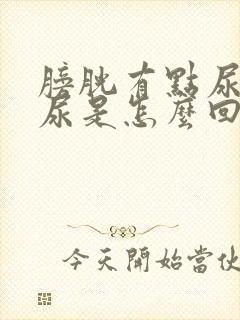 膀胱有點尿
尿是怎麼回
今天開始當伙